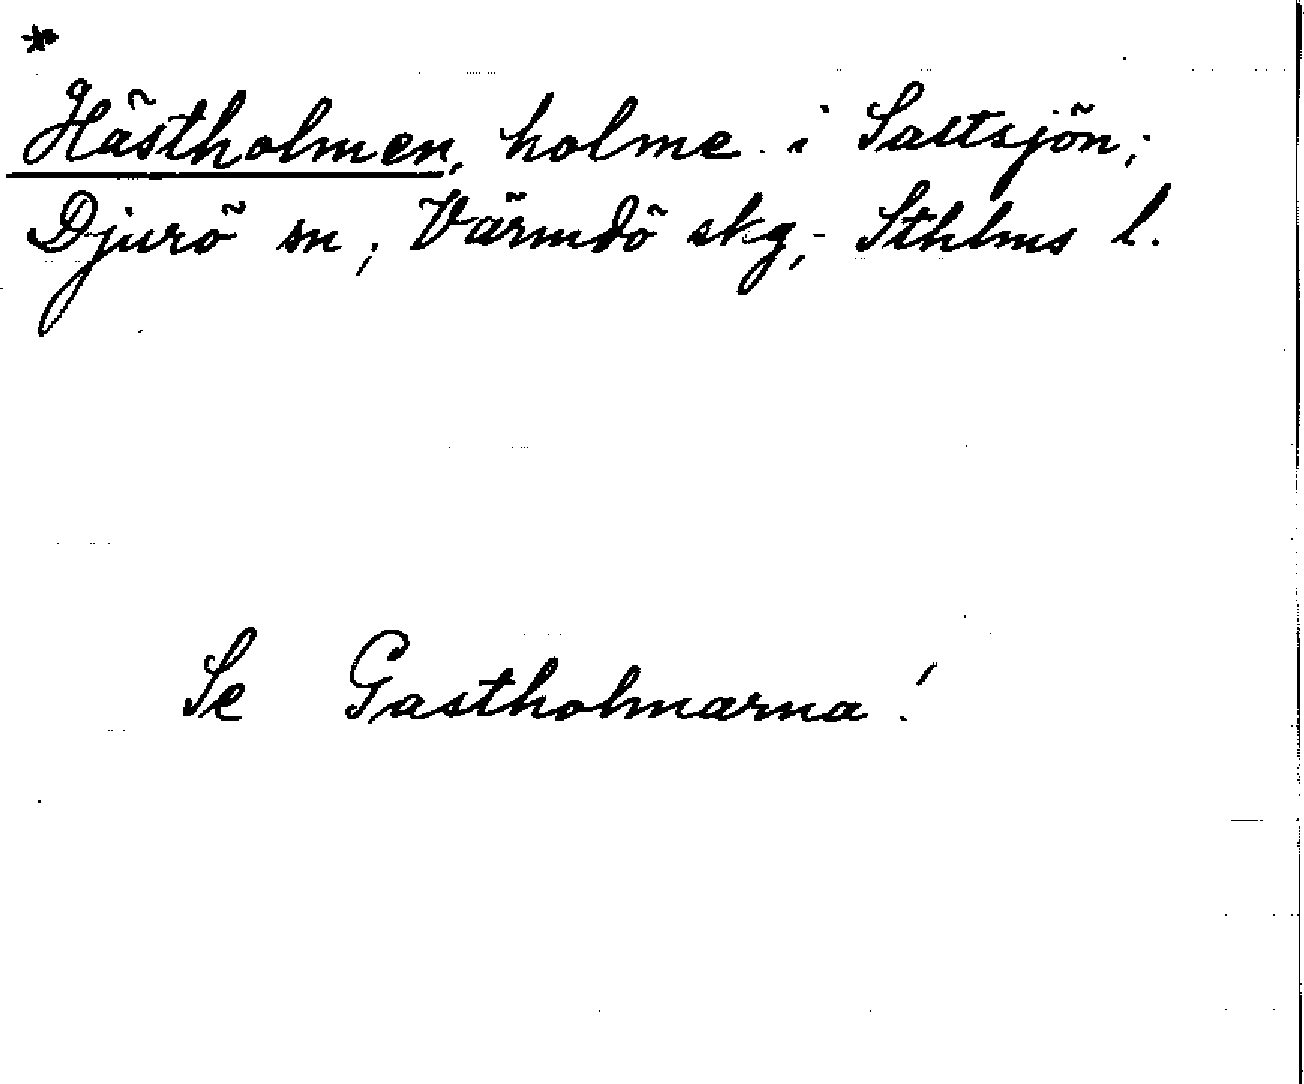 *
Hästholmen, holme i Saltsjön,
Djurö sn, Värmdö skg, Sthlms l.
Se Gastholmarna!